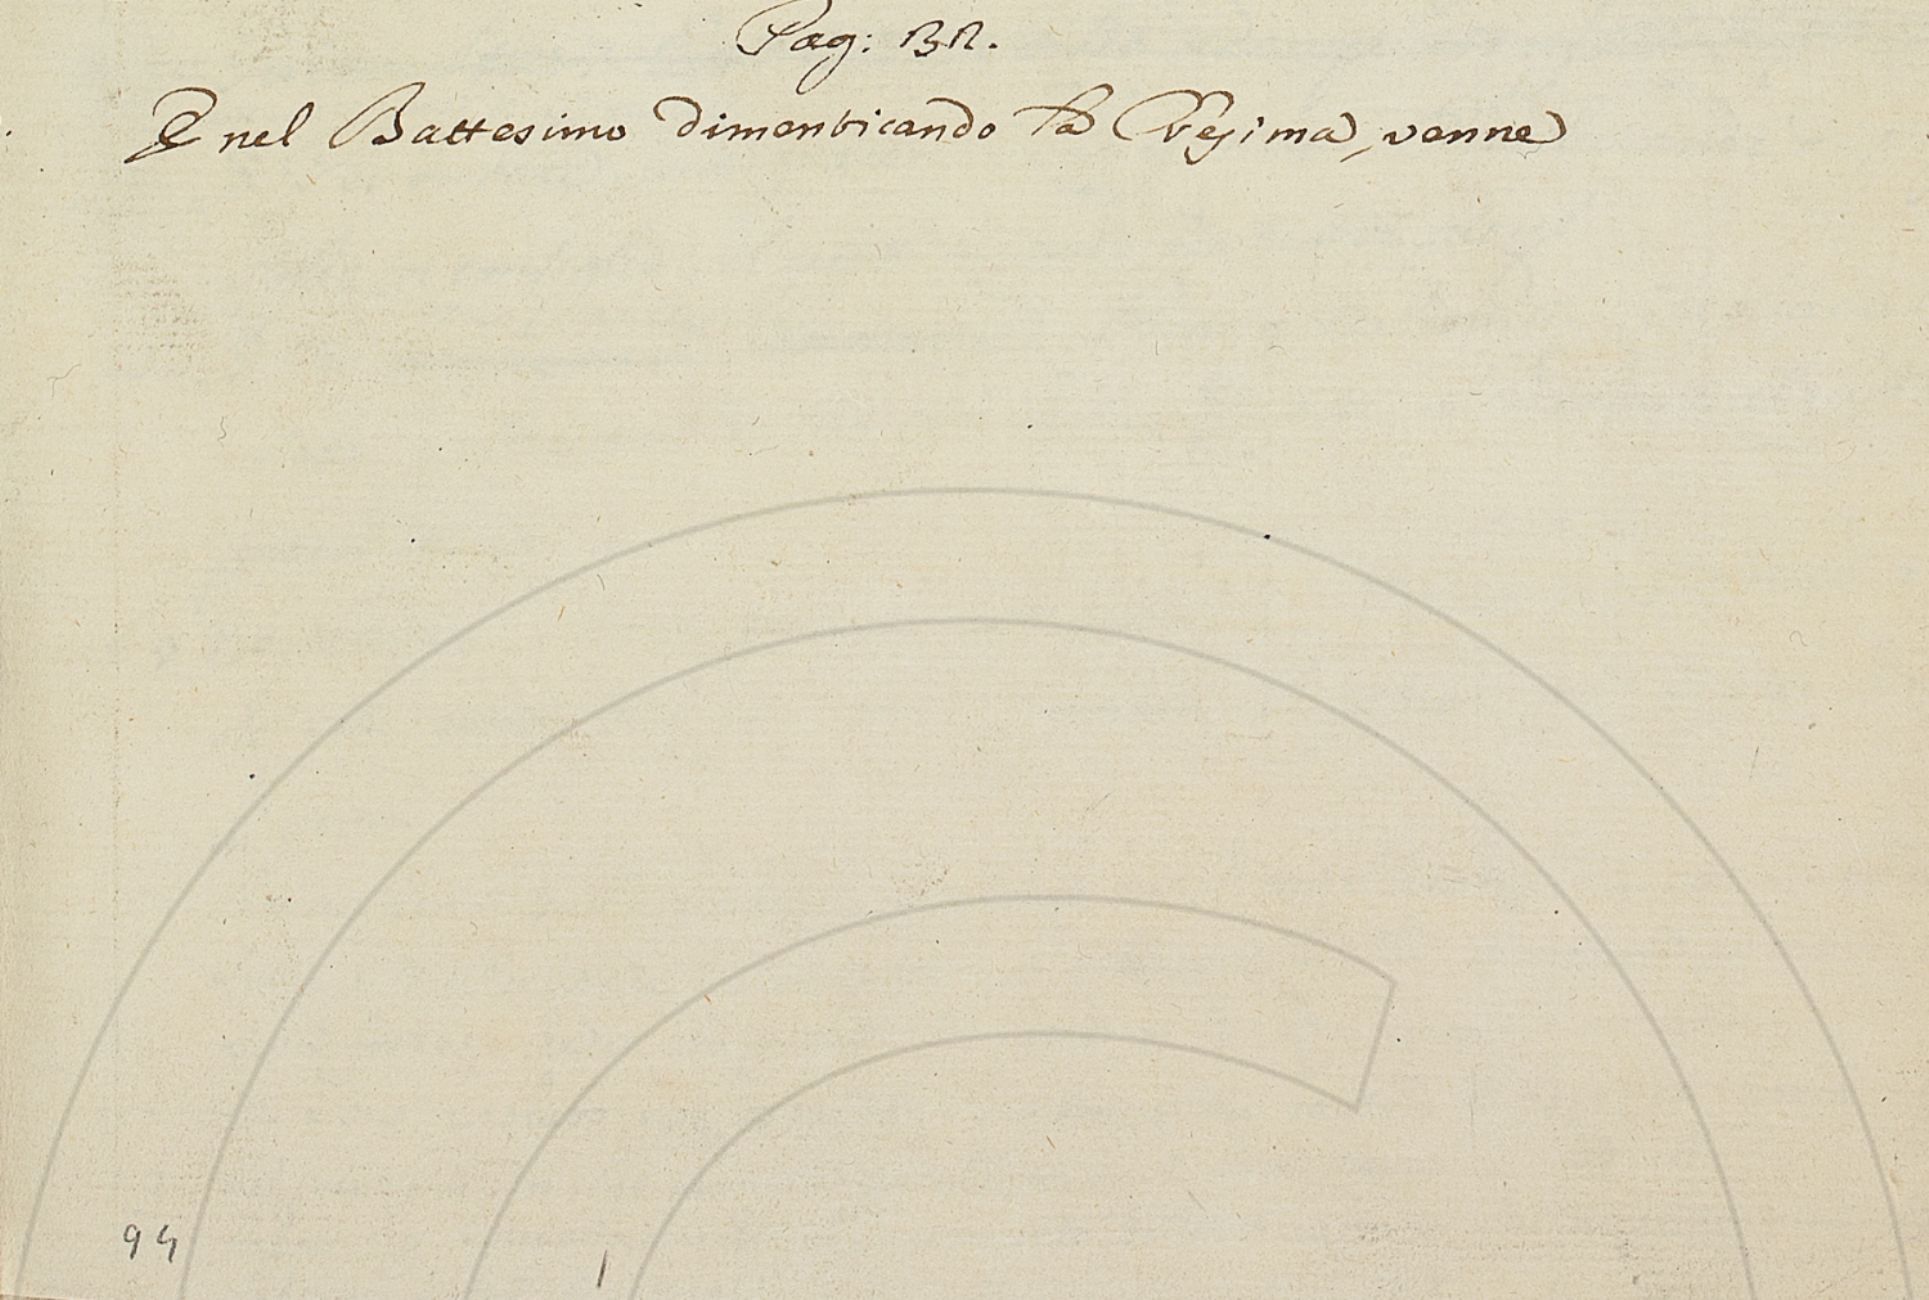 Pag: 132.
E nel Battesimo dimenticando la Cresima, venne
94